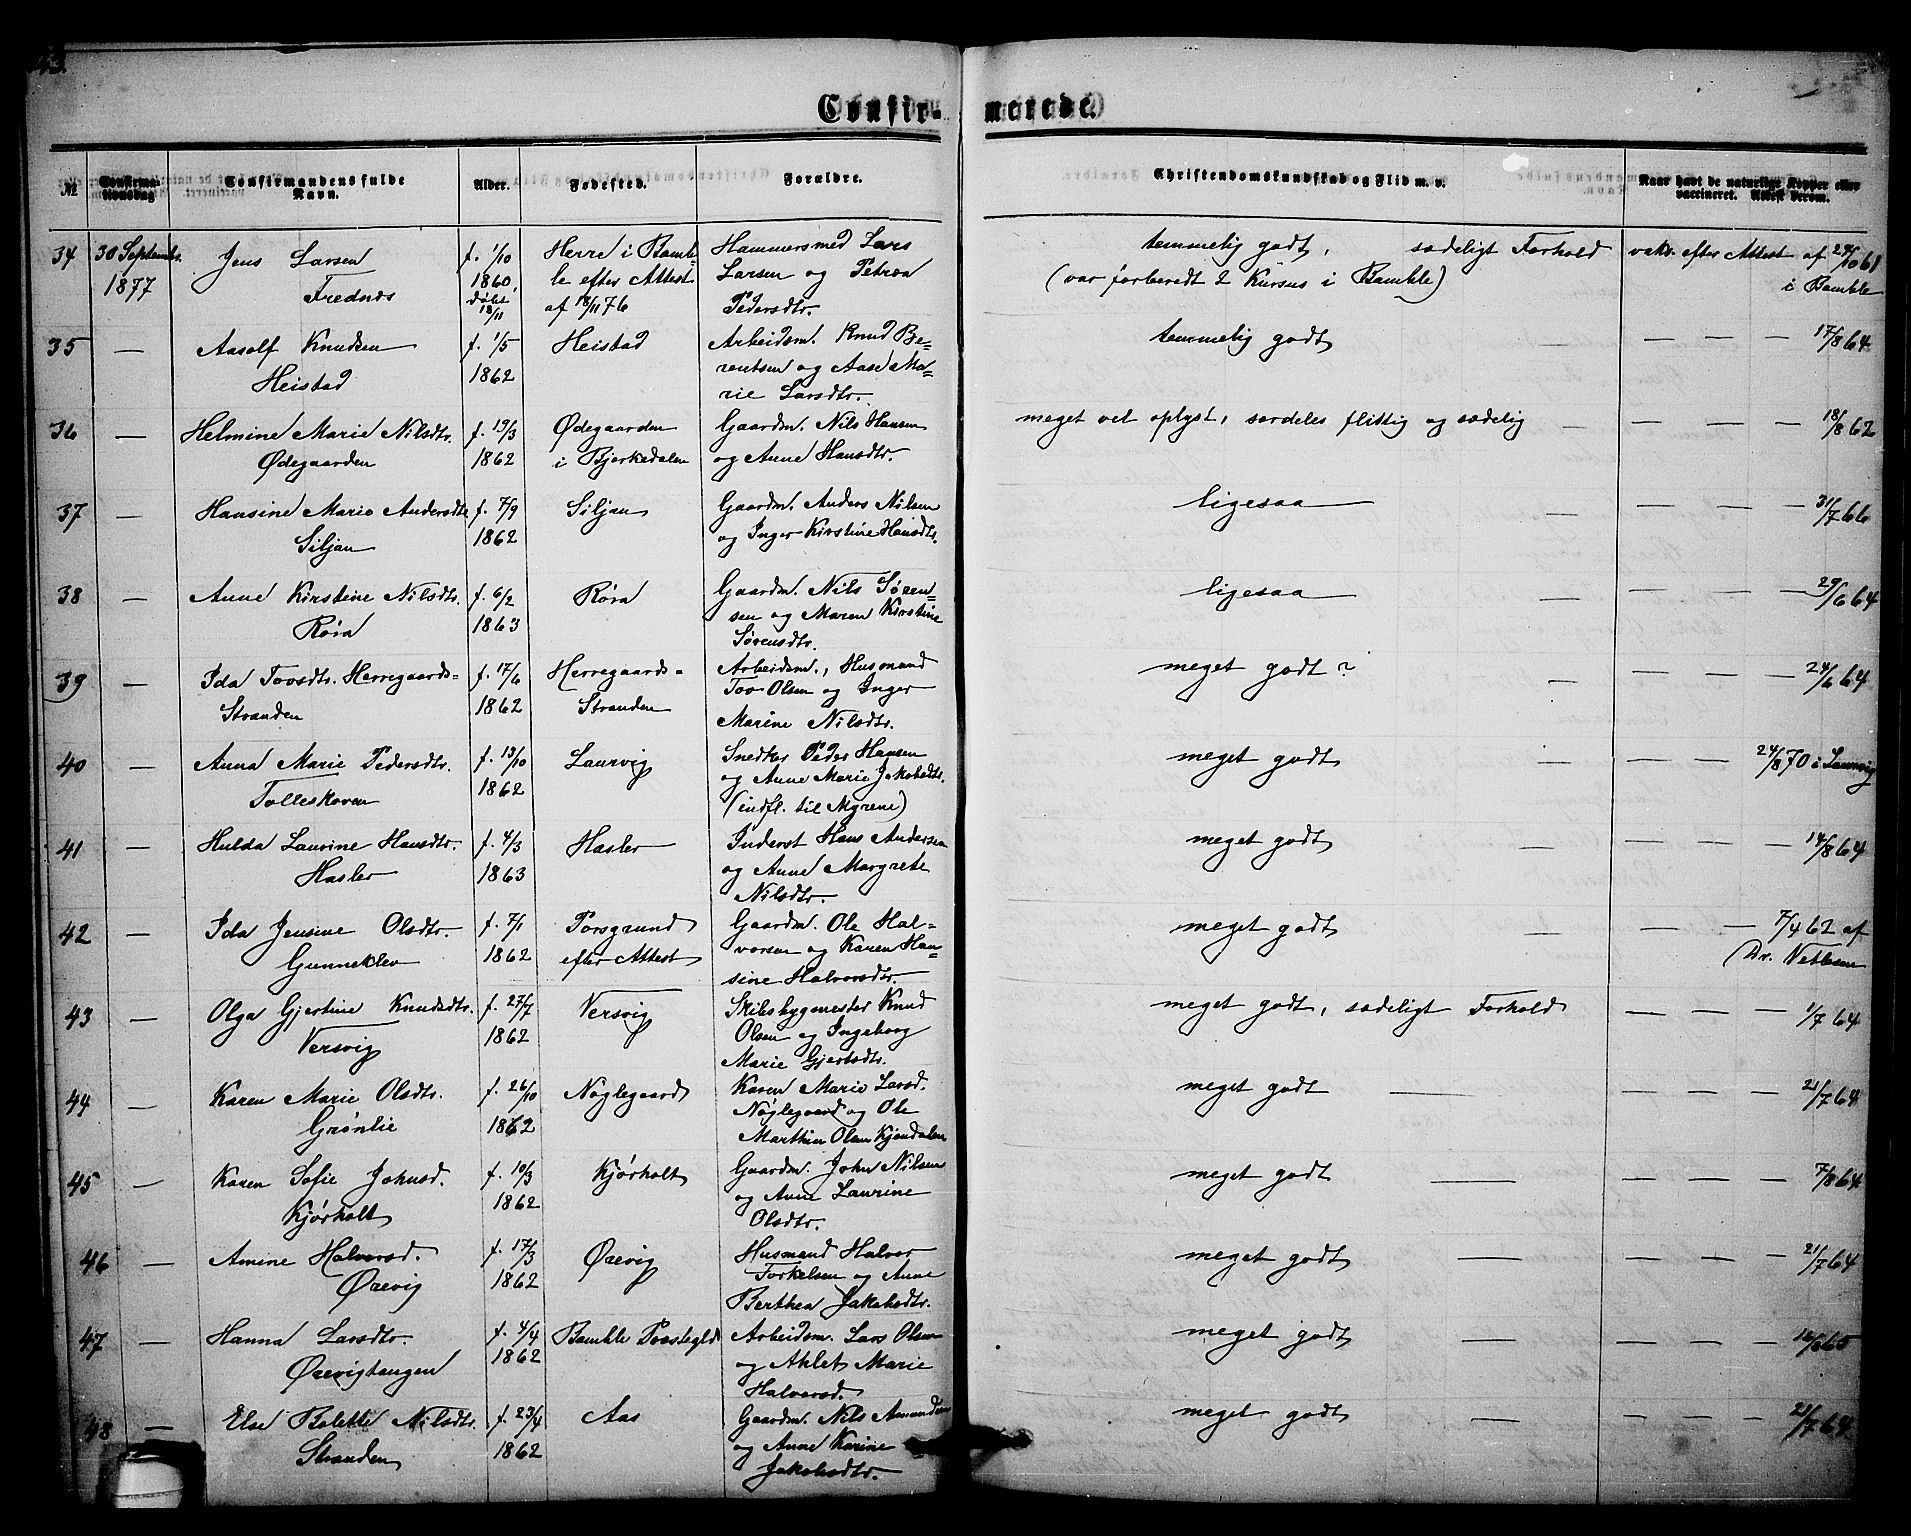 Confir-
merede.
№
Confirma-
tionsdag
Confirmandens fulde
Navn.
Alder.
Fødested.
Forældre.
Christendomskundskab og Flid m. v.
Naar havt de naturlige Kopper eller
vaccineret. Attest derom.
34
30 Septembr.
1877
Jens Larsen
Frednæs
f. 1/10
1860,
døbt
18/11
Herre i Bamb-
le efter Attest
af 18/11 76
Hammersmed Lars
Larsen og Petrea
Pedersdtr.
temmelig godt, sædeligt Forhold
(var forberedt 2 Kursus i Bamble)
vakc. efter Attest af 29/10 61
i Bamble
35 —
Aasolf Knudsen
Heistad
f. 1/5
1862
Heistad
Arbeidsm. Knud Be-
rentsen og Aase Ma-
rie Larsdtr.
temmelig godt —
— — — 17/8 64
36 —
Helmine Marie Nilsdtr.
Ødegaarden
f. 19/3
1862
Ødegaarden
i Bjerkedalen
Gaardm. Nils Hansen
og Anne Hansdtr.
meget vel oplyst, særdeles flittig og sædelig —
— — 18/8 62
37 —
Hansine Marie Andersdtr
Siljan
f. 7/9
1862
Siljan
Gaardm. Anders Nilsen
og Inger Kirstine Hansdtr.
ligesaa —
— — — — 31/7 66
38 —
Anne Kirstine Nilsdtr.
Røra
f. 6/2
1863
Røra
Gaardm. Nils Søren-
sen og Maren Kirstine
Sørensdtr.
ligesaa —
— — — 29/6 64
39 —
Ida Tovsdtr. Herregaards-
Stranden
f. 17/6
1862
Herregaards-
Stranden
Arbeidsm., Husmand
Tov Olsen og Inger
Marine Nilsdtr.
meget godt? —
— — — — 24/6 64
40 —
Anna Marie Pedersdtr.
Tolleskoven
f. 13/10
1862
Laurvig
Snedker Peder Hansen
og Anne Marie Jakobsdtr.
(indfl. til Myrene)
meget godt —
— — — 24/8 70 i Laurvig
41 —
Hulda Laurine Hansdtr.
Hasler
f. 4/3
1863
Hasler
Inderst Hans Andersen
og Anne Margrete
Nilsdtr.
meget godt —
— — — — 14/8 64
42 —
Ida Jensine Olsdtr.
Gunneklev
f. 7/1
1862
Porsgrund
efter Attest
Gaardm. Ole Hal-
vorsen og Karen Han-
sine Halvorsdtr.
meget godt —
— — — 7/4 62 af
Dr. Vetlesen
43 —
Olga Gjertine Knudsdtr.
Versvig
f. 27/7
1862
Versvig
Skibsbygmester Knud
Olsen og Ingeborg
Marie Gjertsdtr.
meget godt, sædeligt Forhold
— — — 1/7 64
44 —
Karen Marie Olsdtr.
Grønlie
f. 26/10
1862
Nøglegaard
Karen Marie Larsd.
Nøglegaard og Ole
Marthin Olsen Kjendalen
meget godt —
— — — 21/7 64
45 —
Karen Sofie Johnsd.
Kjørholt
f. 10/3
1862
Kjørholt
Gaardm. John Nilsen
og Anne Laurine
Olsdtr.
meget godt —
— — — 7/8 64
46 —
Amine Halvorsd.
Ørevig
f. 17/3
1862
Ørevig
Husmand Halvor
Torkelsen og Anne
Berthea Jakobsdtr.
meget godt —
— — — 21/7 64
47 —
Hanna Larsdtr.
Ørevigtangen
f. 4/4
1862
Bamble Præstegld
Arbeidsm. Lars Olsen
og Athlet Marie
Halvorsd.
meget godt —
— — —
48 —
Else Bolette Nilsdtr.
Stranden
f. 23/4
1862
Aas
Gaardm. Nils Amundsen
og Anne Karine
Jakobsdtr.
meget godt —
— — — 21/7 64